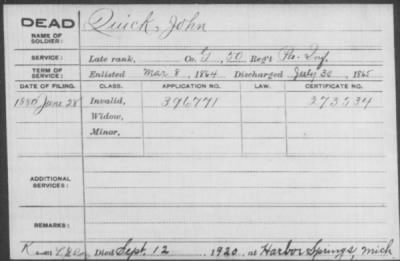 DEAD Quick, John
NAME OF SOLDIER:
SERVICE: Late rank, Co. G, 50 Reg't Pa. Inf.
TERM OF SERVICE: Enlisted Mar 8, 1864 Discharged July 30, 1865
DATE OF FILING. CLASS. APPLICATION NO. LAW. CERTIFICATE NO.
1880 June 28 Invalid, 396771 273534
Widow,
Minor,
ADDITIONAL SERVICES:
REMARKS:
Died Sept. 12 1920 at Harbor Springs, Mich